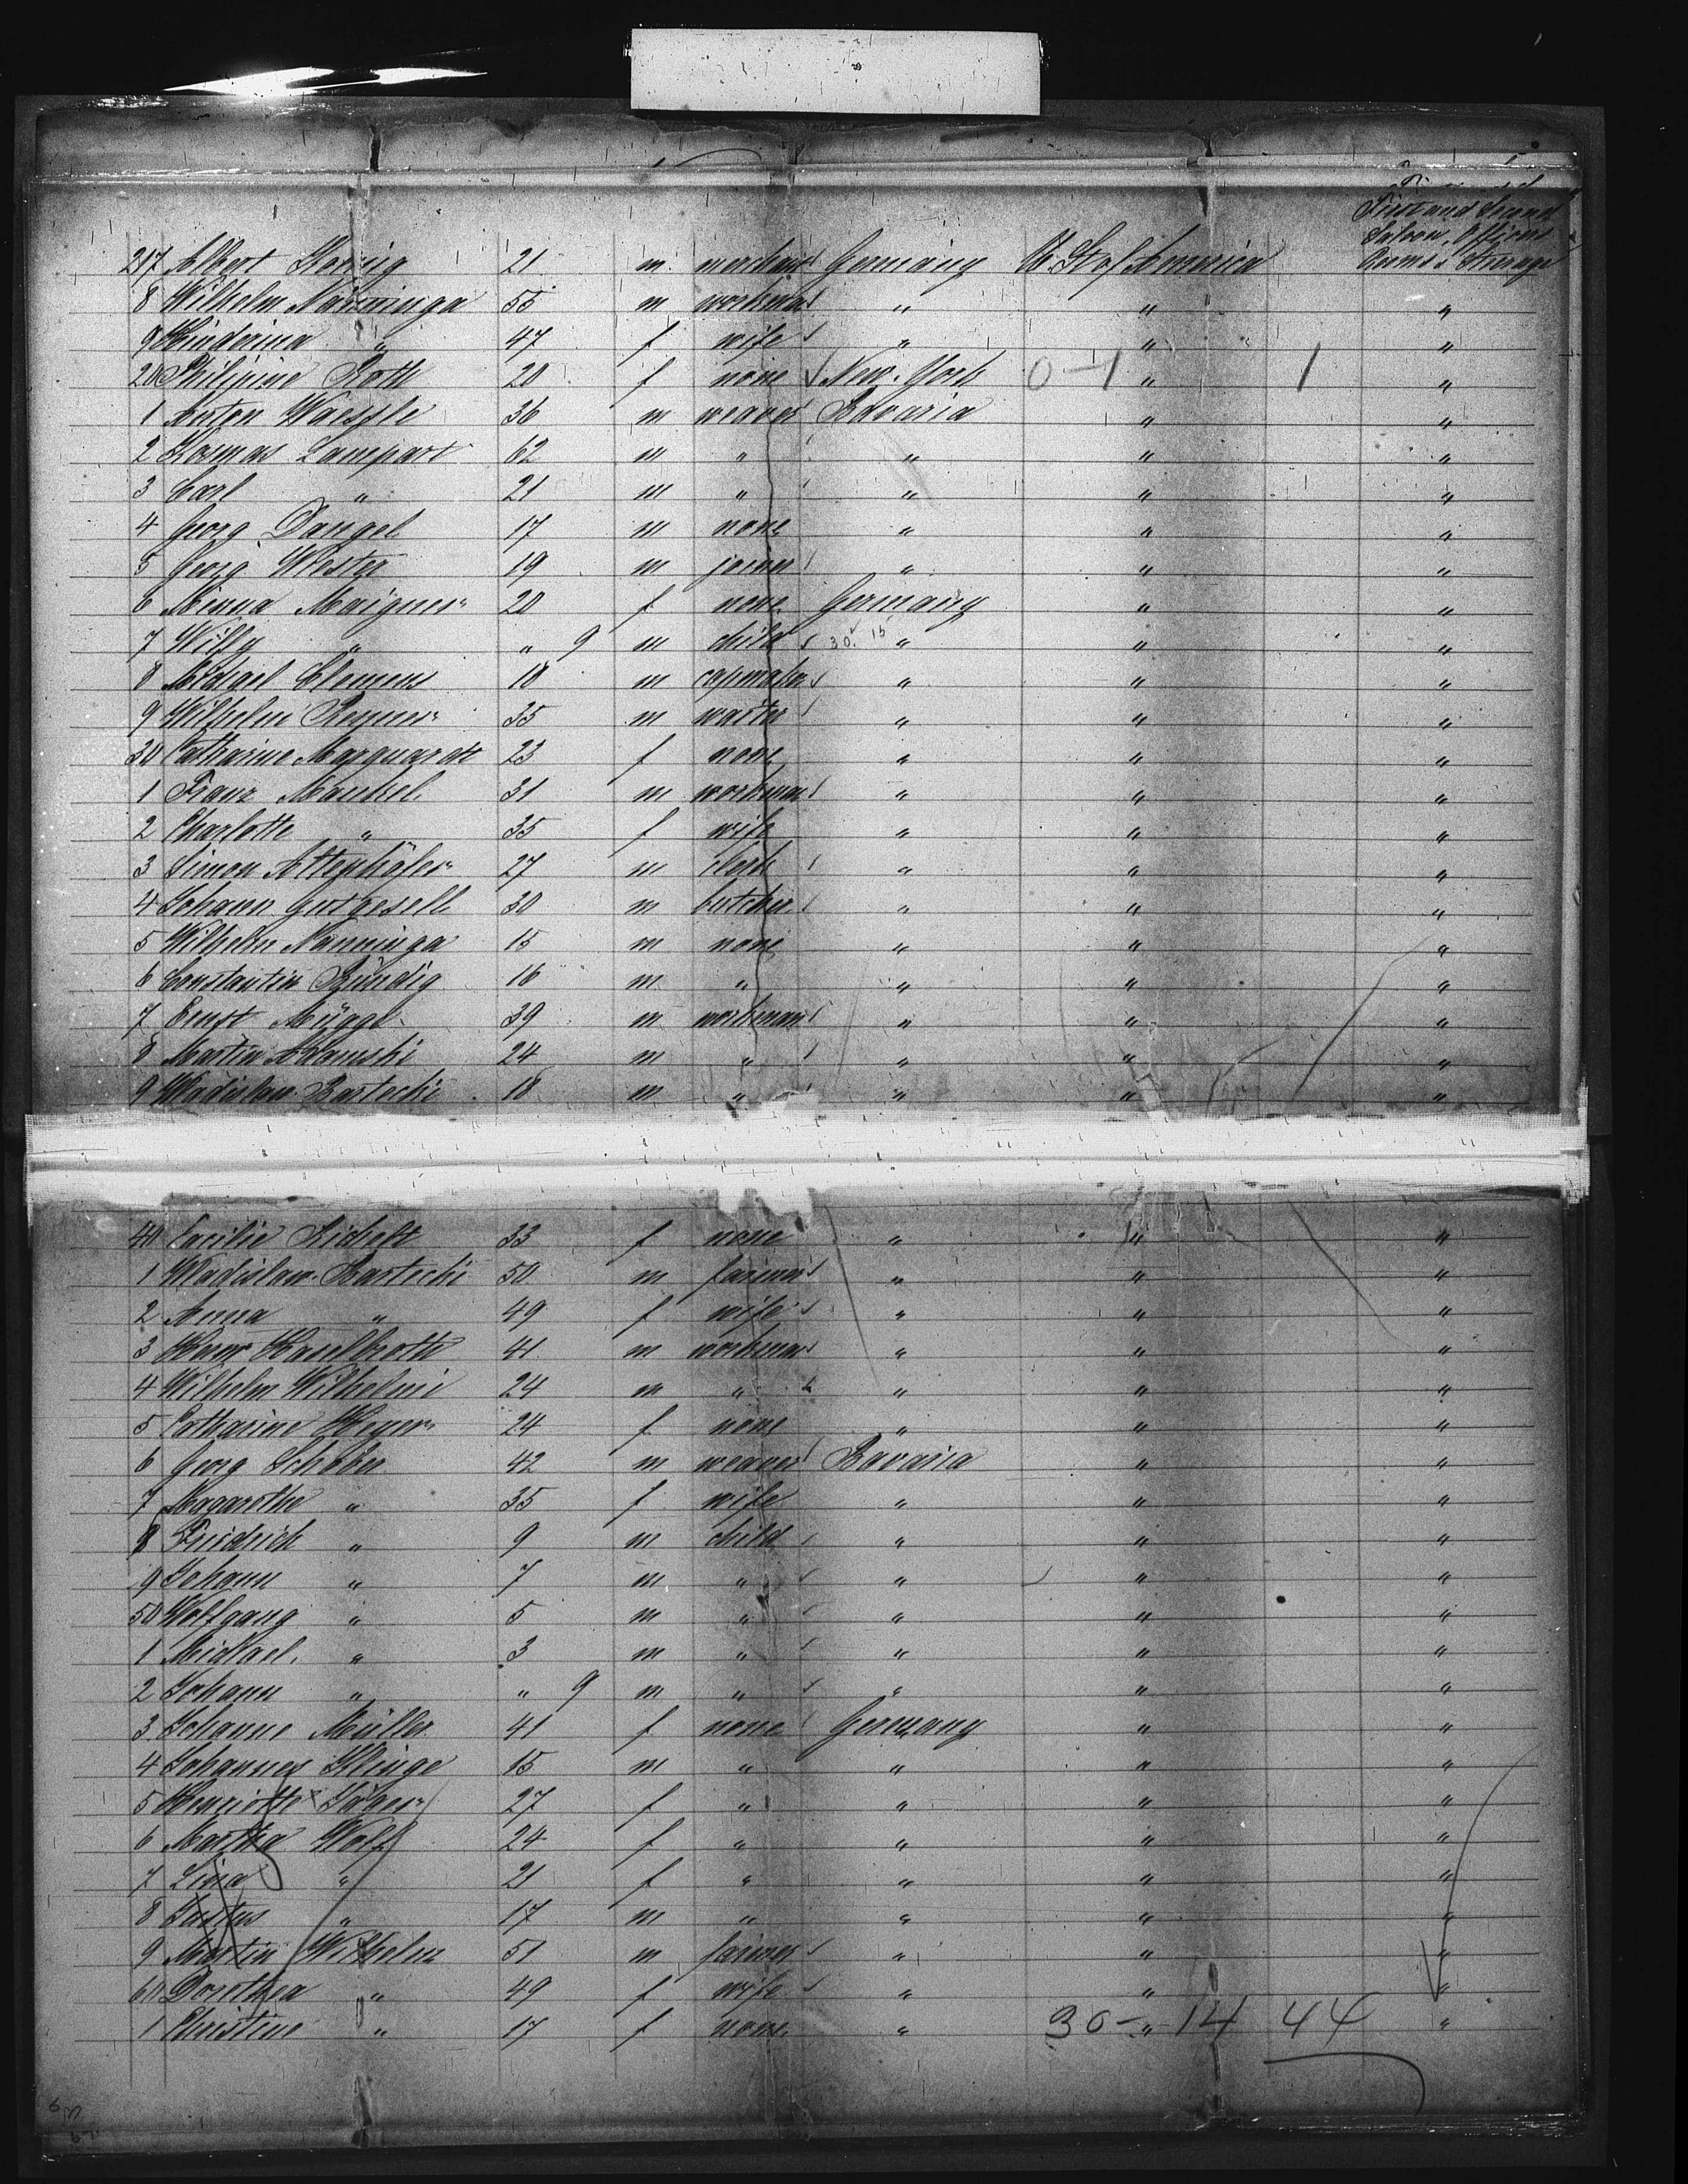 First and Second
Saloon, Officers
217 Albert König 21 m merchant Germany U. St of America Rooms & Steerage
8 Wilhelm Nanninga 55 m workman " " "
9 Hinderina " 47 f wife " " "
20 Philipine Roth 20 f none New-York 0-1 " 1 "
1 Anton Waessle 36 m weaver Bavaria " "
2 Kosmas Lampart 62 m " " " "
3 Carl " 21 m " " " "
4 Georg Dangel 17 m none " " "
5 Georg Wester 19 m joiner " " "
6 Minna Maigner 20 f none Germany " "
7 Willy " " 9 m child 30. 15 " " "
8 Michael Clemens 18 m capmaker " " "
9 Wilhelm Renner 35 m waiter " " "
30 Catharine Marquardt 23 f none " " "
1 Franz Mankel 31 m workman " " "
2 Charlotte " 35 f wife " " "
3 Simon Attenhöfer 27 m clerk " " "
4 Johann Gutgesell 30 m butcher " " "
5 Wilhelm Nanninga 15 m none " " "
6 Constantin Bündig 16 m " " " "
7 Ernst Mügge 39 m workman " " "
8 Martin Adamski 24 m " " " "
9 Wladislaw Bartecki 18 m " " " "
40 Cecilie 33 f none " " "
1 Wladislaw Bartecki 50 m farmer " " "
2 Anna " 49 f wife " " "
3 41 m workman " " "
4 Wilhelm Wilhelmi 24 m " " " "
5 Catharine Heyer 24 f none " " "
6 Georg Schober 42 m weaver Bavaria " "
7 Magarethe " 35 f wife " " "
8 Friedrich " 9 m child " " "
9 Johann " 7 m " " " "
50 Wolfgang " 5 m " " " "
1 Michael " 3 m " " " "
2 Johann " " 9 m " " " "
3 Johanne Müller 41 f none Germany " "
4 Johannes Klinge 15 m " " " "
5 Henriette Jäger 27 f " " " "
6 Martha Wolf 24 f " " " "
7 Lina " 21 f " " " "
8 Justus " 17 m " " " "
9 Martin Wilhelm 51 m farmer " " "
60 Dorothea " 49 f wife " " "
1 Christine " 17 f none " 30- " 14 44 "